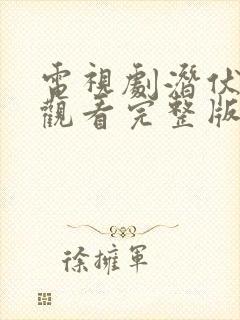 電視劇潛伏
觀看完整版
徐擁軍